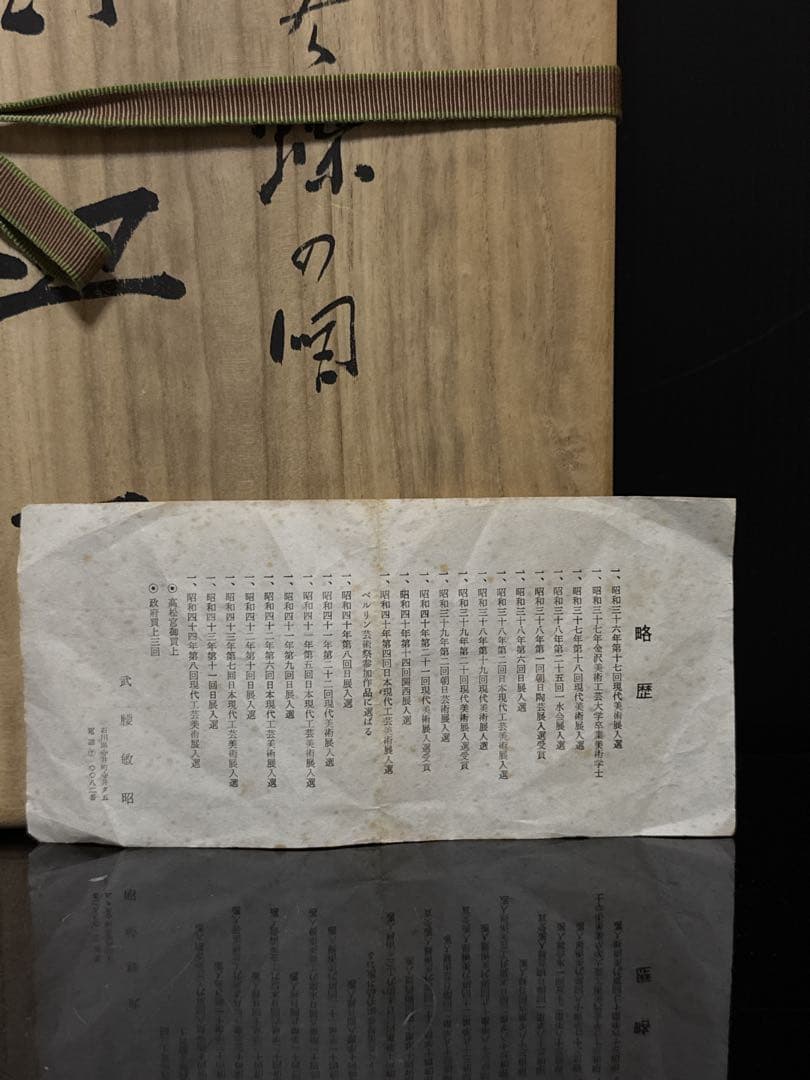 蝶の図
略歴
一、昭和三十六年第十七回現代美術展入選
一、昭和三十七年金沢美術工芸大学卒業美術学士
一、昭和三十七年第十八回現代美術展入選
一、昭和三十八年第二十五回一水会展入選
一、昭和三十八年第一回朝日陶芸展入選受賞
一、昭和三十八年第六回日展入選
一、昭和三十八年第二回日本現代工芸美術展入選
一、昭和三十八年第十九回現代美術展入選
一、昭和三十九年第二十回現代美術展入選受賞
一、昭和三十九年第二回朝日芸術展入選
一、昭和四十年第二十一回現代美術展入選受賞
一、昭和四十年第十四回関西展入選
一、昭和四十年第四回日本現代工芸美術展入選
ベルリン芸術祭参加作品に選ばる
一、昭和四十年第八回日展入選
一、昭和四十一年第二十二回現代美術展入選
一、昭和四十一年第五回日本現代工芸美術展入選
一、昭和四十一年第九回日展入選
一、昭和四十二年第六回日本現代工芸美術展入選
一、昭和四十二年第十回日展入選
一、昭和四十三年第七回日本現代工芸美術展入選
一、昭和四十三年第十一回日展入選
一、昭和四十四年第八回現代工芸美術展入選
◉高松宮御買上
◉政府買上三回
武腰敏昭
石川県寺井町寺井タ五
電話⑦〇〇八二番